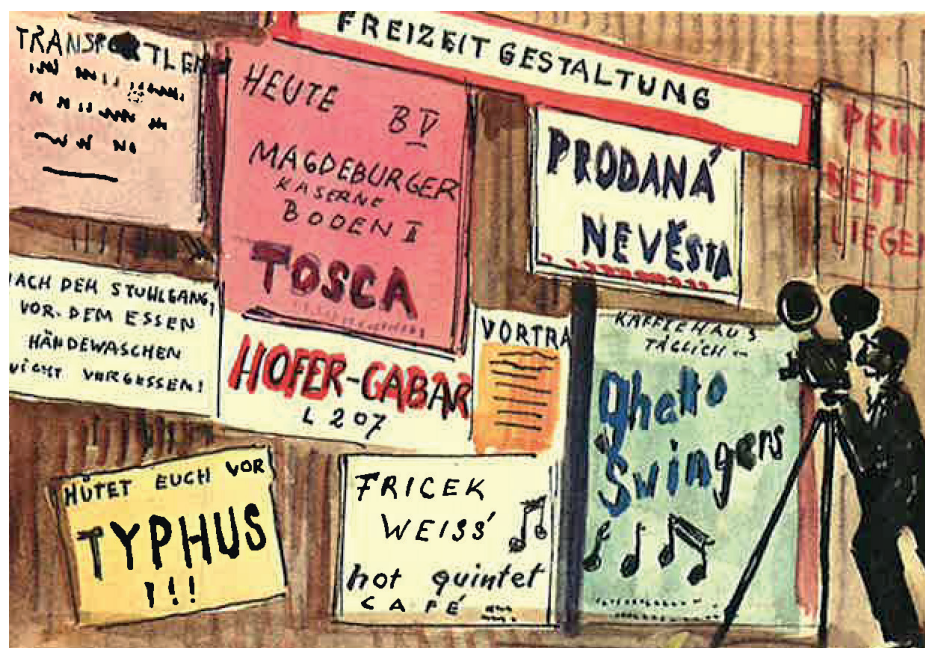 FREIZEITGESTALTUNG
TRANSPORTLEI
HEUTE
BV
MAGDEBURGER
KASERNE
BODEN II
TOSCA
PRODANÁ
NEVĚSTA
PRIN
BETT
LIEGEN
NACH DEM STUHLGANG,
VOR. DEM ESSEN
HÄNDEWASCHEN
NICHT VERGESSEN!
HOFER-GABAR
L 207
VORTRA
KAFFEEHAUS
TÄGLICH
Ghetto
Swingers
HÜTET EUCH VOR
TYPHUS
!!!
FRICEK
WEISS'
hot quintet
CAFÉ